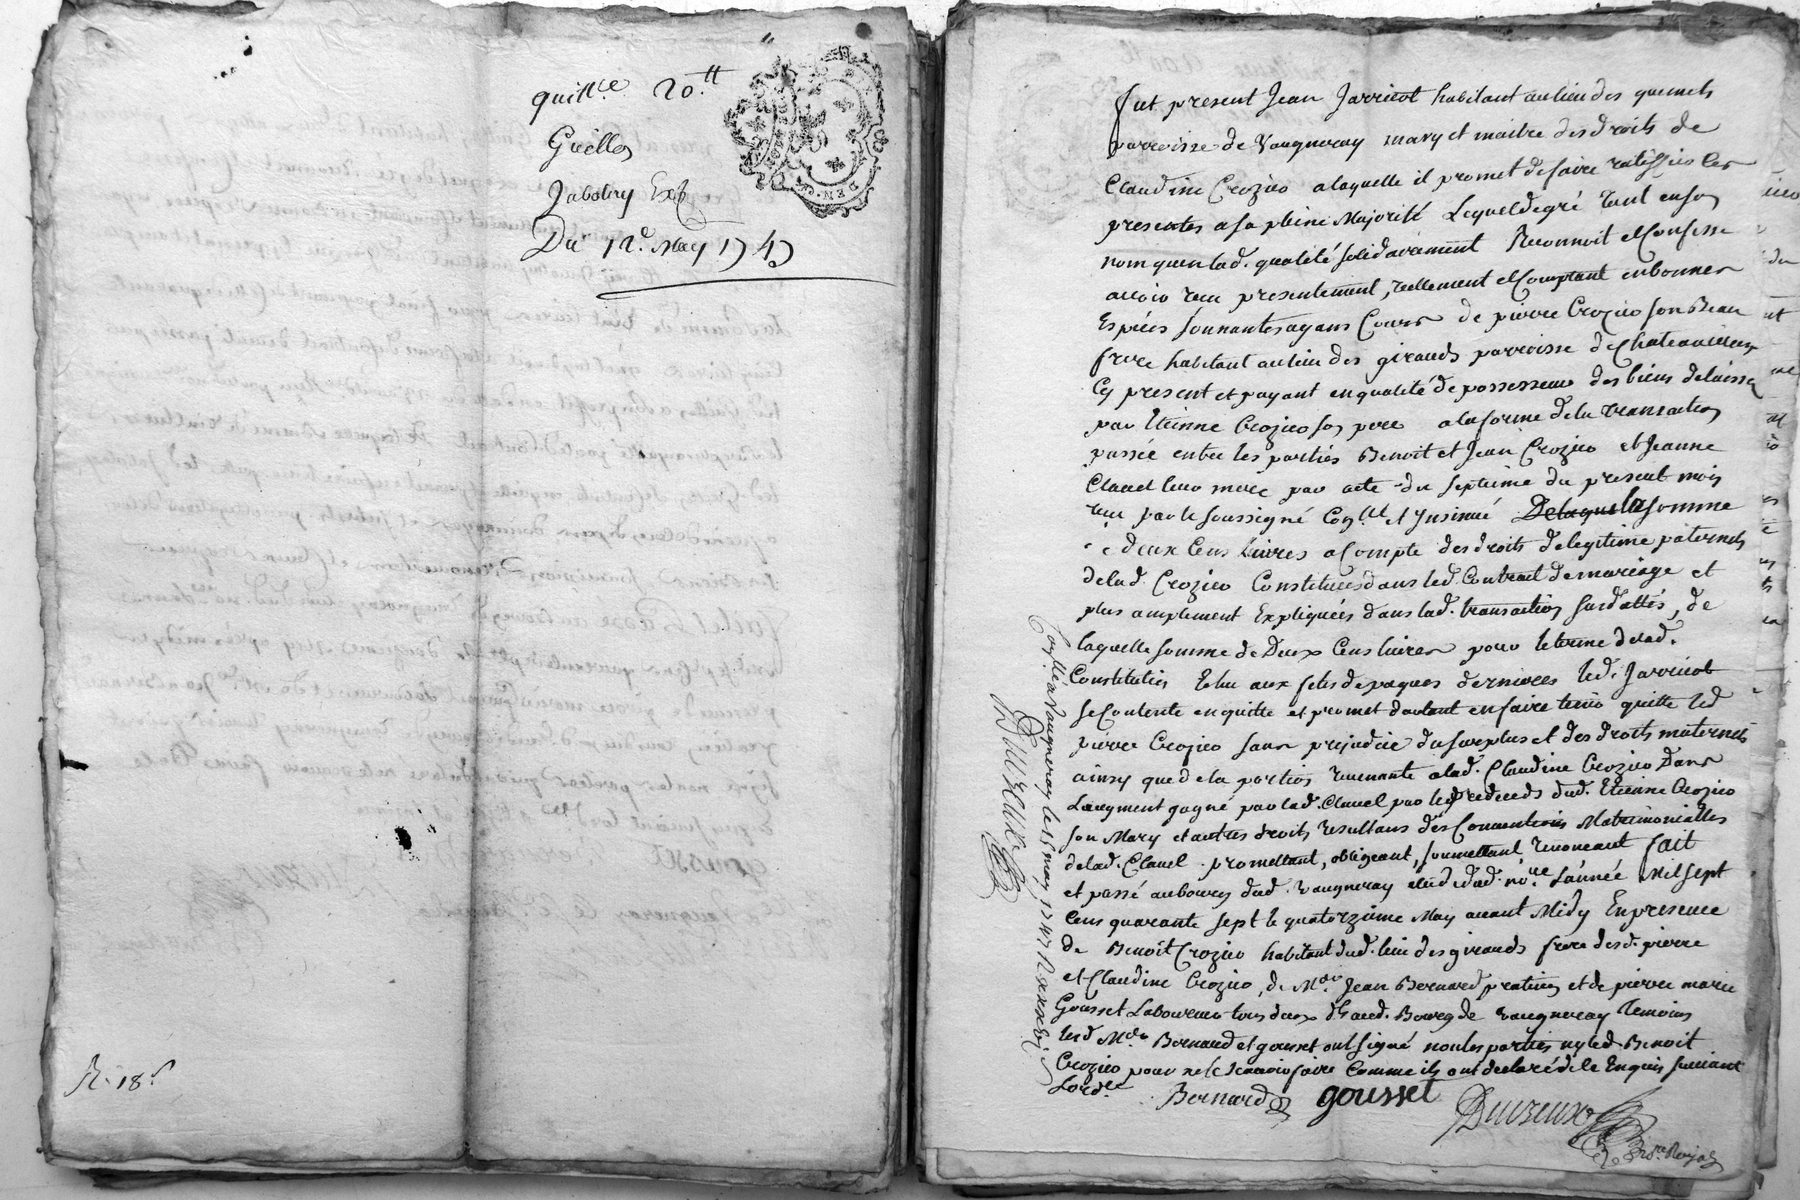 quitt.ce 20.tt
Du 12.e May 1747
R. 18.s
fut present Jean Jarricot habitant au lieu des quemets
parroisse de Vaugneray mary et maitre des droits de
Claudine Crozier a laquelle il promet de faire ratiffier les
presentes a sa pleine Majorité Lequel de gré tant en son
nom qu'en lad. qualité solidairement Reconnoit et Confesse
avoir reçu presentement, reellement et Comptant en bonnes
Espéces sonnantes ayans Cours de pierre Crozier son Beau
frere habitant au lieu des girauds parroisse de Chateauvieux
Cy present et payant en qualité de possesseur des biens delaissés
par Etienne Crozier son pere a la forme de la transaction
passée entre les parties Benoit et Jean Crozier et Jeanne
Clavel leur mere par acte du septieme du present mois
reçu par le soussigné Con.lle et Insinué De laquelle la somme
de deux Cens Livres a Compte des droits de legitime paternels
de lad. Crozier Constitués dans led. Contrat de mariage et
plus amplement Expliquées dans lad. transaction susdattés, de
laquelle somme de Deux Cens livres pour le terme de lad.
Constitution Echu aux fetes de paques dernieres led. Jarricot
se Contente en quitte et promet d'autant en faire tenir quitte led
pierre Crozier sans prejudice du surplus et des droits maternels
ainsy que de la portion revenante a lad. Claudine Crozier Dans
L'augment gagné par lad. Clavel par le predeceds dud. Etienne Crozier
son Mary et autres droits resultans des Conventions Matrimonialles
de lad. Clavel promettant, obligeant, soumettant renonceant fait
et passé au bourg dud. vaugneray etude dud. no.re L'année Mil sept
Cens quarante sept le quatorzieme May avant Midy En presence
de Benoit Crozier habitant dud. lieu des girauds frere desd. pierre
et Claudine Crozier, de M.e Jean Bernard praticien et de pierre marie
Gousset Laboureur tous deux dud. Bourg de vaugneray temoins
lesd. Bernard et gousset ont signé non les parties ny led. Benoit
Crozier pour ne le scavoir faire Comme ils ont declaré de ce Enquis suivant
L'ord.ce
Bernard gousset
Con.llé a Vaugneray le 15 may 1747